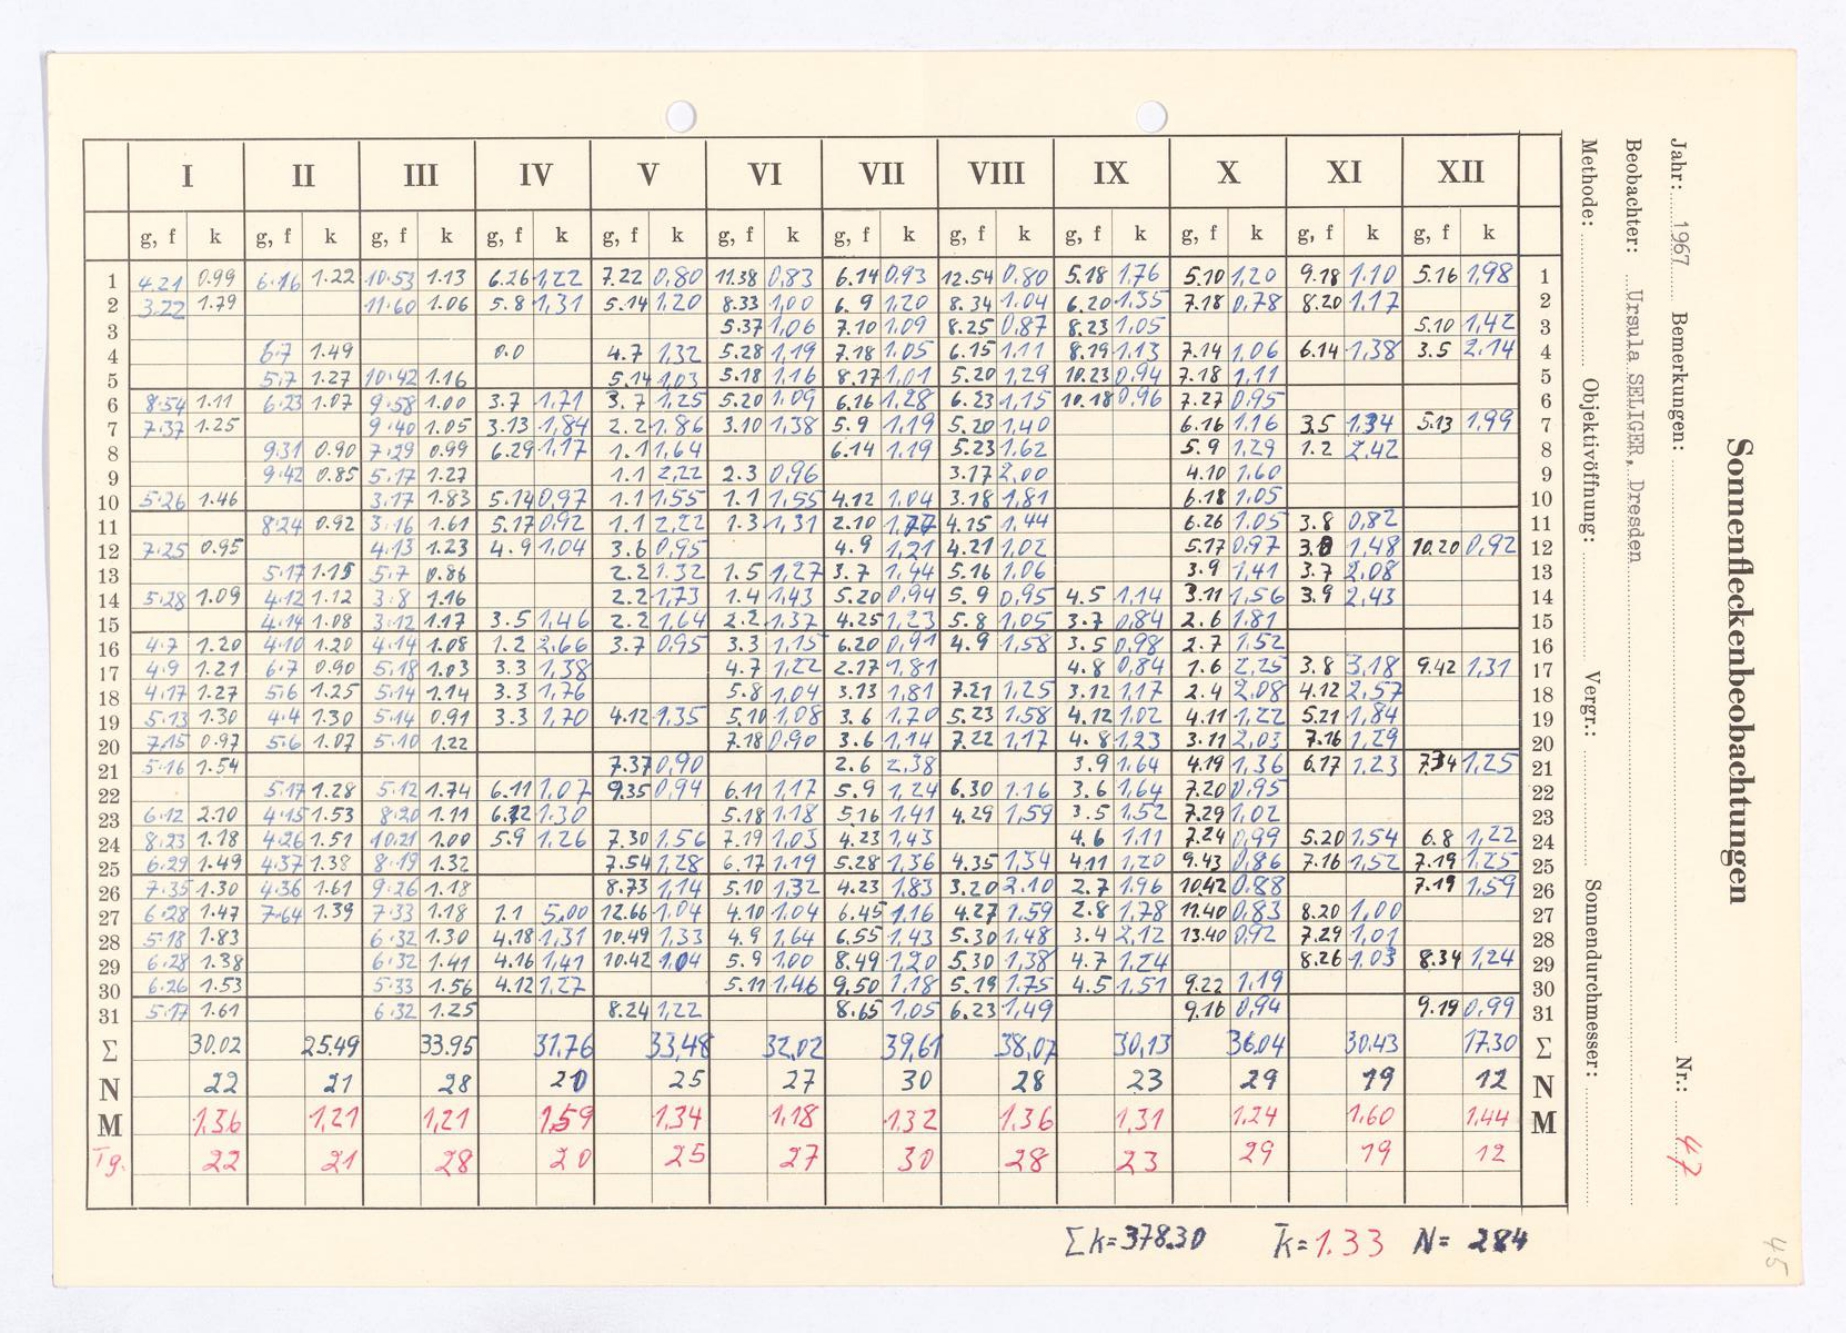 Sonnenfleckenbeobachtungen
Jahr: 1967 Bemerkungen: Nr.: 47
Beobachter: Ursula SELIGER, Dresden
Methode: Objektivöffnung: Vergr.: Sonnendurchmesser:
I II III IV V VI VII VIII IX X XI XII
g, f k g, f k g, f k g, f k g, f k g, f k g, f k g, f k g, f k g, f k g, f k g, f k
1 4.21 0.99 6.16 1.22 10.53 1.13 6.26 1,22 7.22 0,80 11.38 0,83 6.14 0,93 12.54 0,80 5.18 1,76 5.10 1,20 9.18 1.10 5.16 1,98 1
2 3.22 1.79 11.60 1.06 5.8 1,31 5.14 1,20 8.33 1,00 6.9 1,20 8.34 1.04 6.20 1.35 7.18 0,78 8.20 1.17 2
3 5.37 1,06 7.10 1,09 8.25 0,87 8.23 1,05 5.10 1,42 3
4 6.7 1.49 0.0 4.7 1,32 5.28 1,19 7.18 1.05 6.15 1.11 8.19 1.13 7.14 1,06 6.14 1,38 3.5 2,14 4
5 5.7 1.27 10.42 1.16 5.14 1,03 5.18 1,16 8.17 1,01 5.20 1,29 10.23 0,94 7.18 1,11 5
6 8.54 1.11 6.23 1.07 9.58 1.00 3.7 1,71 3.7 1,25 5.20 1.09 6.16 1,28 6.23 1,15 10.18 0,96 7.27 0,95 6
7 7.37 1.25 9.40 1.05 3.13 1,84 2.2 1,86 3.10 1,38 5.9 1,19 5.20 1,40 6.16 1,16 3.5 1.34 5.13 1,99 7
8 9.31 0.90 7.29 0.99 6.29 1,17 1.1 1,64 6.14 1.19 5.23 1.62 5.9 1,29 1.2 2,42 8
9 9.42 0.85 5.17 1.27 1.1 2,22 2.3 0,96 3.17 2,00 4.10 1,60 9
10 5.26 1.46 3.17 1.83 5.14 0,97 1.1 1.55 1.1 1,55 4.12 1,04 3.18 1,81 6.18 1,05 10
11 8.24 0.92 3.16 1.61 5.17 0,92 1.1 2,22 1.3 1,31 2.10 1,77 4.15 1,44 6.26 1,05 3.8 0,82 11
12 7.25 0.95 4.13 1.23 4.9 1,04 3.6 0,95 4.9 1,21 4.21 1,02 5.17 0,97 3.8 1,48 10.20 0,92 12
13 5.17 1.15 5.7 0.86 2.2 1.32 1.5 1,27 3.7 1,44 5.16 1,06 3.9 1,41 3.7 2,08 13
14 5.28 1.09 4.12 1.12 3.8 1.16 2.2 1,73 1.4 1,43 5.20 0,94 5.9 0,95 4.5 1,14 3.11 1,56 3.9 2,43 14
15 4.14 1.08 3.12 1.17 3.5 1,46 2.2 1,64 2.2 1,37 4.25 1,23 5.8 1,05 3.7 0,84 2.6 1.81 15
16 4.7 1.20 4.10 1.20 4.14 1.08 1.2 2,66 3.7 0,95 3.3 1,15 6.20 0,91 4.9 1,58 3.5 0,98 2.7 1,52 16
17 4.9 1.21 6.7 0.90 5.18 1.03 3.3 1,38 4.7 1,22 2.17 1,81 4.8 0,84 1.6 2,25 3.8 3,18 9.42 1,31 17
18 4.17 1.27 5.6 1.25 5.14 1.14 3.3 1,76 5.8 1,04 3.13 1,81 7.21 1,25 3.12 1,17 2.4 2,08 4.12 2,57 18
19 5.13 1.30 4.4 1.30 5.14 0.91 3.3 1,70 4.12 1,35 5.10 1,08 3.6 1,70 5.23 1,58 4.12 1,02 4.11 1,22 5.21 1,84 19
20 7.15 0.97 5.6 1.07 5.10 1.22 7.18 0,90 3.6 1,14 7.22 1,17 4.8 1,23 3.11 2,03 7.16 1,29 20
21 5.16 1.54 7.37 0,90 2.6 2,38 3.9 1.64 4.19 1,36 6.17 1.23 7.34 1,25 21
22 5.17 1.28 5.12 1.74 6.11 1,07 9.35 0,94 6.11 1,17 5.9 1,24 6.30 1.16 3.6 1,64 7.20 0,95 22
23 6.12 2.10 4.15 1.53 8.20 1.11 6.12 1.30 5.18 1.18 5.16 1,41 4.29 1,59 3.5 1,52 7.29 1,02 23
24 8.23 1.18 4.26 1.51 10.21 1.00 5.9 1,26 7.30 1,56 7.19 1,03 4.23 1,43 4.6 1,11 7.24 0,99 5.20 1,54 6.8 1,22 24
25 6.29 1.49 4.37 1.38 8.19 1.32 7.54 1,28 6.17 1,19 5.28 1,36 4.35 1,34 4.11 1,20 9.43 0,86 7.16 1,52 7.19 1.25 25
26 7.35 1.30 4.36 1.61 9.26 1.18 8.73 1,14 5.10 1,32 4.23 1,83 3.20 2.10 2.7 1,96 10.42 0,88 7.19 1,59 26
27 6.28 1.47 7.64 1.39 7.33 1.18 1.1 5,00 12.66 1.04 4.10 1.04 6.45 1,16 4.27 1,59 2.8 1,78 11.40 0,83 8.20 1,00 27
28 5.18 1.83 6.32 1.30 4.18 1,31 10.49 1,33 4.9 1,64 6.55 1,43 5.30 1,48 3.4 2,12 13.40 0,92 7.29 1,01 28
29 6.28 1.38 6.32 1.41 4.16 1,41 10.42 1.04 5.9 1,00 8.49 1,20 5.30 1,38 4.7 1,24 8.26 1,03 8.34 1,24 29
30 6.26 1.53 5.33 1.56 4.12 1,27 5.11 1,46 9.50 1,18 5.19 1.75 4.5 1,51 9.22 1,19 30
31 5.17 1.61 6.32 1.25 8.24 1,22 8.65 1,05 6.23 1,49 9.16 0,94 9.19 0,99 31
Σ 30.02 25.49 33.95 31.76 33,48 32,02 39,61 38,07 30,13 36.04 30.43 17.30 Σ
N 22 21 28 20 25 27 30 28 23 29 19 12 N
M 1,36 1,21 1,21 1,59 1,34 1,18 1,32 1.36 1,31 1.24 1,60 1.44 M
Tg. 22 21 28 20 25 27 30 28 23 29 19 12
Σk=378.30 k̄=1.33 N= 284
45